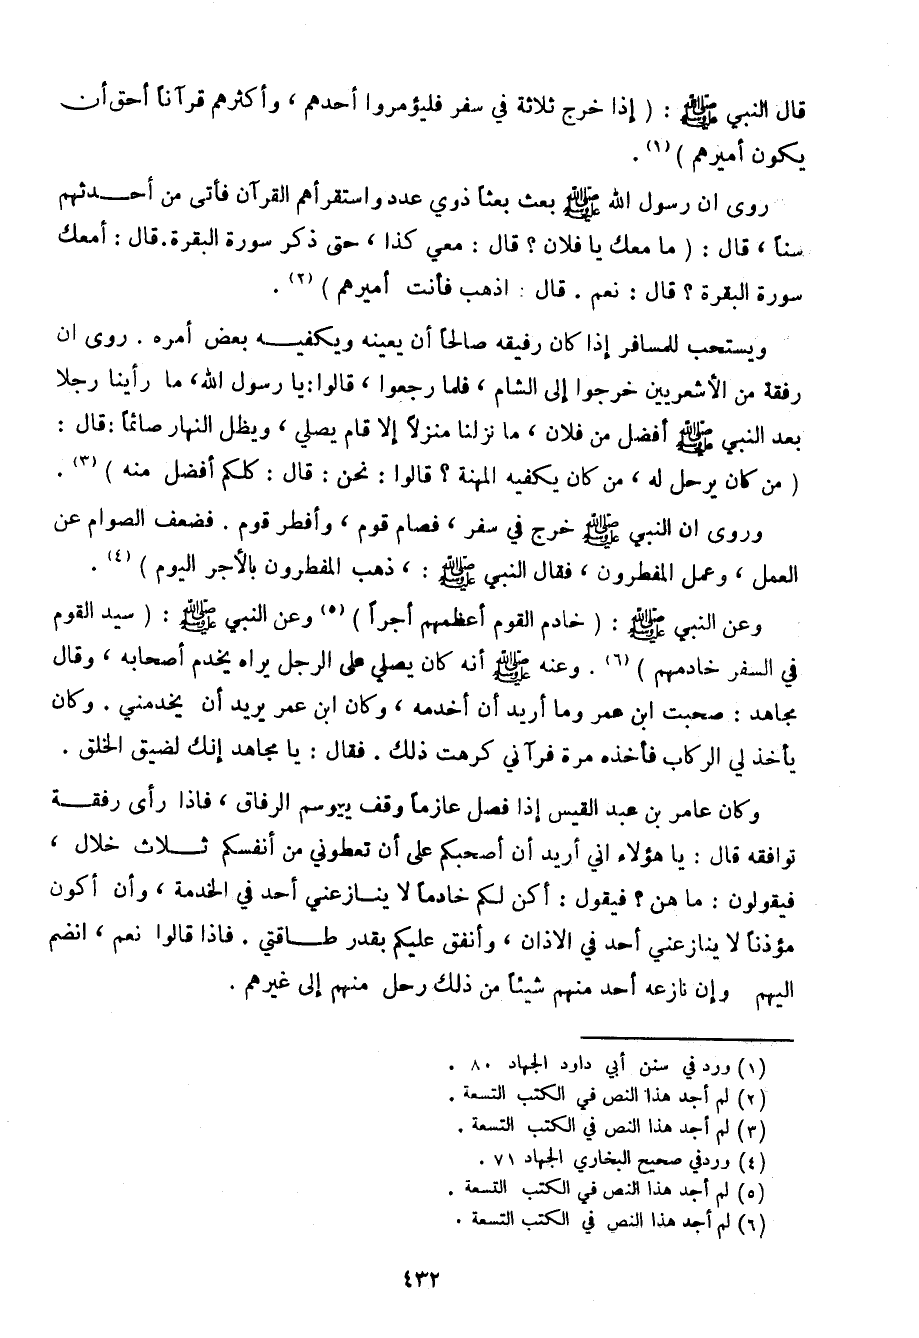 قال النبي ﷺ : ( إذا خرج ثلاثة في سفر فليؤمروا أحدهم ، وأكثرهم قرآناً أحق أن
يكون أميرهم ) (١) .
روى ان رسول الله ﷺ بعث بعثاً ذوي عدد واستقرأهم القرآن فأتى من أحـــدثهم
سناً ، قال : ( ما معك يا فلان ؟ قال : معي كذا ، حتى ذكر سورة البقرة . قال : أمعك
سورة البقرة ؟ قال : نعم . قال : اذهب فأنت أميرهم ) (٢) .
ويستحب للمسافر إذا كان رفيقه صالحاً أن يعينه ويكفيـــه بعض أمره . روى ان
رفقة من الأشعريين خرجوا إلى الشام ، فلما رجعوا ، قالوا : يا رسول الله ، ما رأينا رجلا
بعد النبي ﷺ أفضل من فلان ، ما نزلنا منزلاً إلا قام يصلي ، ويظل النهار صائماً : قال :
( من كان يرحل له ، من كان يكفيه المهنة ؟ قالوا : نحن : قال : كلكم أفضل منه ) (٣) .
وروى ان النبي ﷺ خرج في سفر ، فصام قوم ، وأفطر قوم . فضعف الصوام عن
العمل ، وعمل المفطرون ، فقال النبي ﷺ : ، ذهب المفطرون بالأجر اليوم ) (٤) .
وعن النبي ﷺ : ( خادم القوم أعظمهم أجراً ) (٥) وعن النبي ﷺ : ( سيد القوم
في السفر خادمهم ) (٦) . وعنه ﷺ أنه كان يصلي على الرجل يراه يخدم أصحابه ، وقال
مجاهد : صحبت ابن عمر وما أريد أن أخدمه ، وكان ابن عمر يريد أن يخدمني . وكان
يأخذ لي الركاب فأخذه مرة فرآني كرهت ذلك . فقال : يا مجاهد إنك لضيق الخلق .
وكان عامر بن عبد القيس إذا فصل عازماً وقف بموسم الرفاق ، فاذا رأى رفقـــة
توافقه قال : يا هؤلاء اني أريد أن أصحبكم على أن تعطوني من أنفسكم ثـــلاث خلال ،
فيقولون : ما هن ؟ فيقول : أكن لكم خادماً لا ينــازعني أحد في الخدمة ، وأن أكون
مؤذناً لا ينازعني أحد في الاذان ، وأنفق عليكم بقدر طــاقتي . فاذا قالوا نعم ، انضم
اليهم وإن نازعه أحد منهم شيئاً من ذلك رحل منهم إلى غيرهم .
(١) ورد في سنن أبي داود الجهاد ٨٠ .
(٢) لم أجد هذا النص في الكتب التسعة .
(٣) لم أجد هذا النص في الكتب التسعة .
(٤) ورد في صحيح البخاري الجهاد ٧١ .
(٥) لم أجد هذا النص في الكتب التسعة .
(٦) لم أجد هذا النص في الكتب التسعة .
٤٣٢